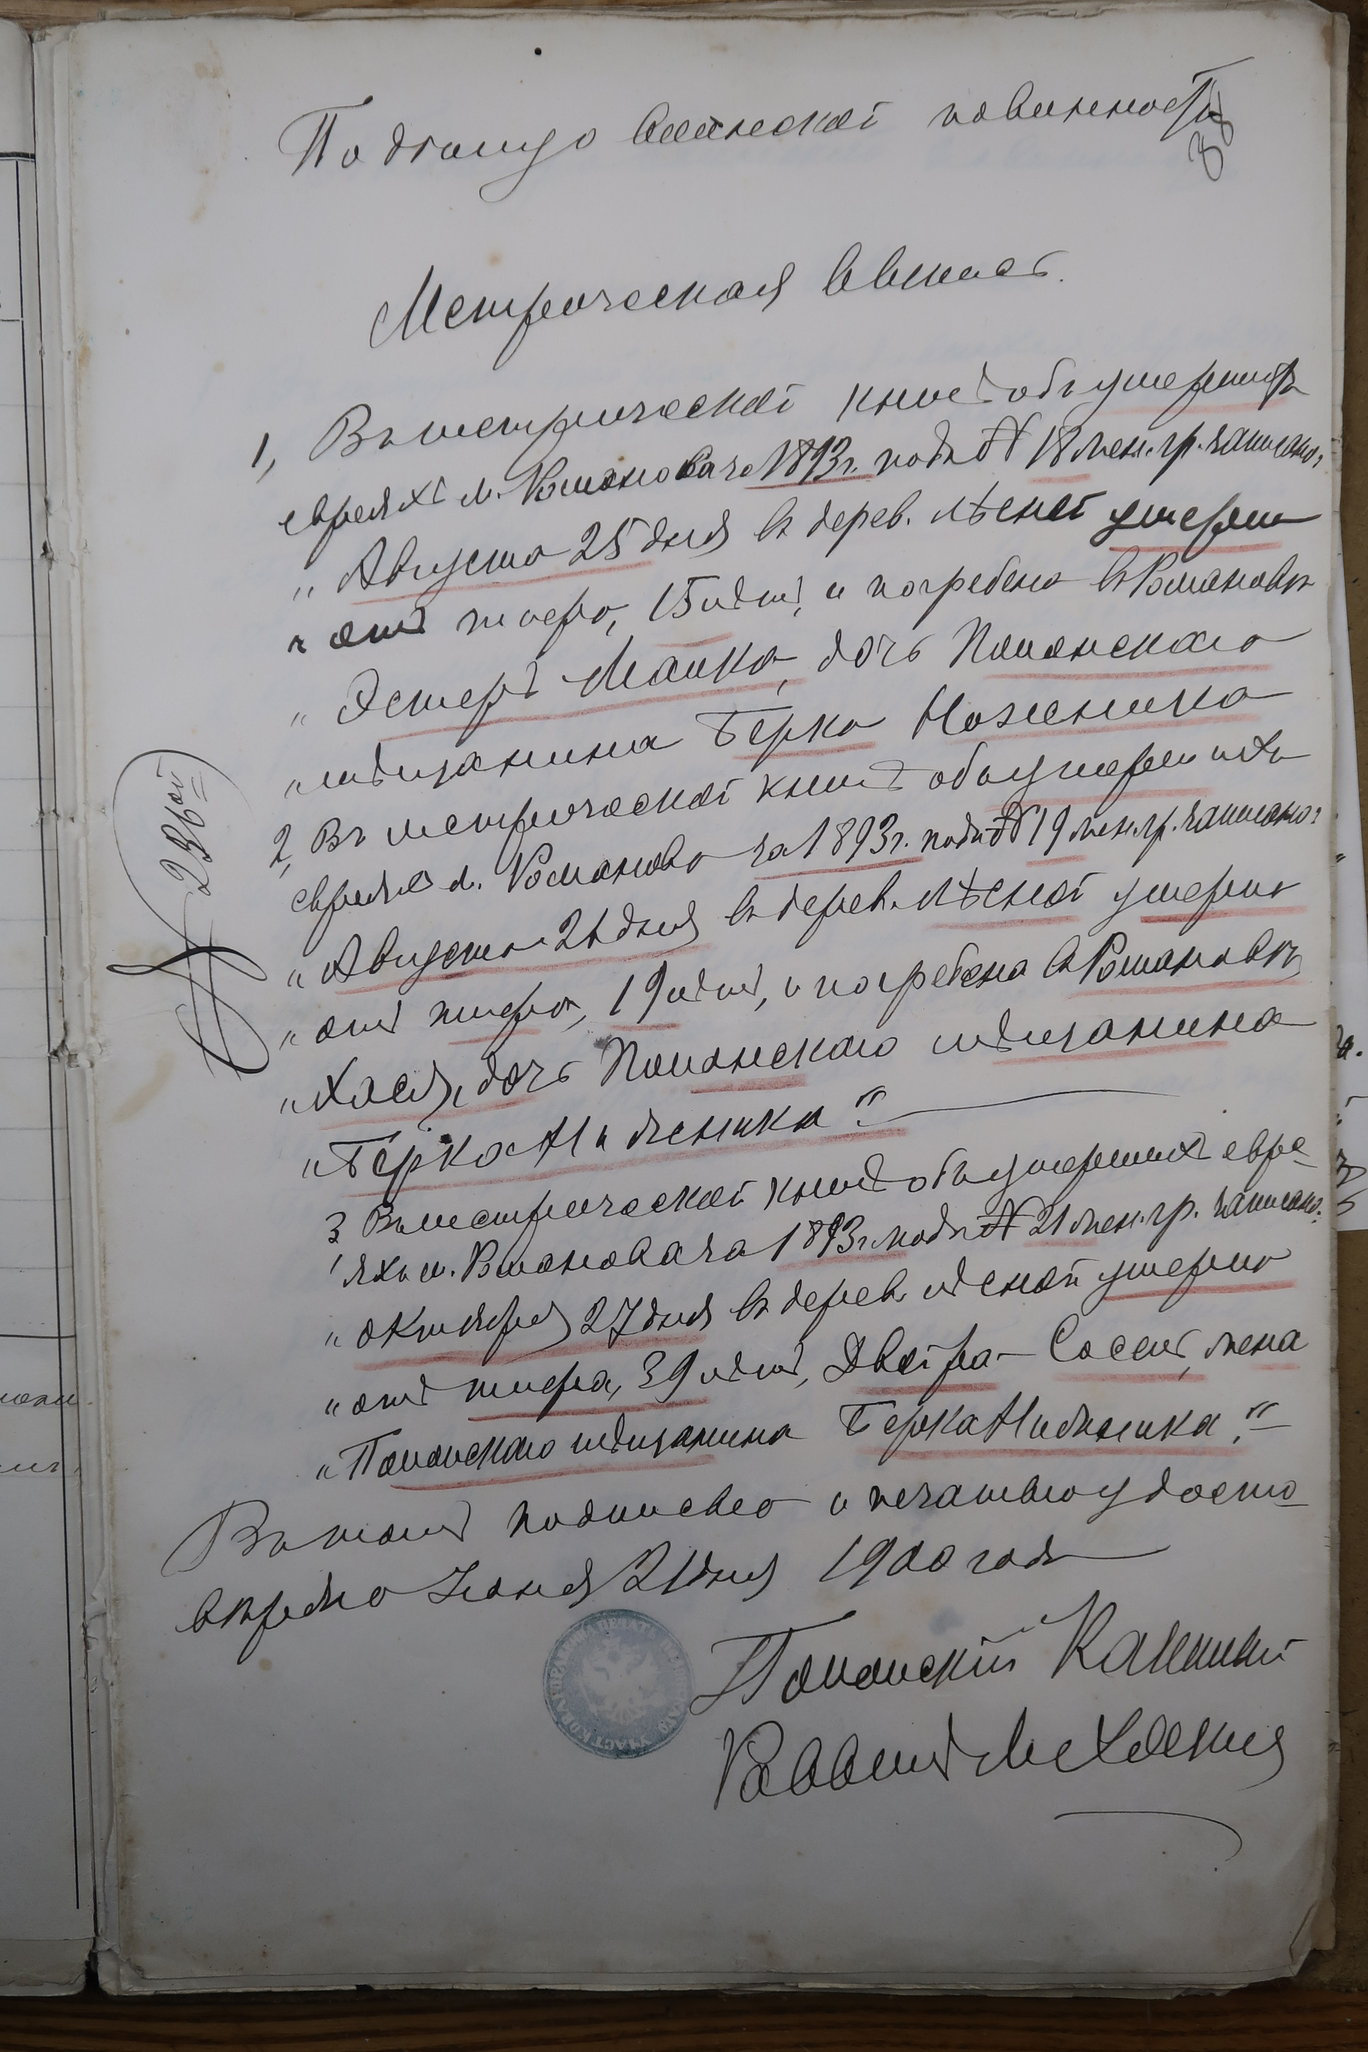 По дѣлу о воинской повинности
38
Метрическая выпись.
1, Въ метрической книгѣ объ умершихъ
евреяхъ м. Романова за 1893 г. подъ № 18 жен. гр. записано:
„ Августа 25 дня въ дерев. Лѣсной умерла
„ отъ тифа, 15 лѣтъ, и погребена въ Романовѣ
„ Эстеръ Малка, дочь Копыльскаго
„ мѣщанина Берка
2, Въ метрической книгѣ объ умершихъ
евреяхъ м. Романова за 1893 г. подъ № 19 жен. гр. записано:
„ Августа 21 дня въ дерев. Лѣсной умерла
„ отъ тифа, 19 лѣтъ, и погребена въ Романовѣ
„ Хася, дочь Копыльскаго мѣщанина
„ Берка “
3 Въ метрической книгѣ объ умершихъ евре-
яхъ м. Романова за 1893 г. подъ № 21 жен. гр. записано:
„ Октября 27 дня въ дерев. Лѣсной умерла
„ отъ тифа, 39 лѣтъ, Двейра- жена
„ мѣщанина Берка “
Въ томъ подписью и печатью удосто-
вѣряю Іюня 21 дня 1900 года
Казенный
Раввинъ